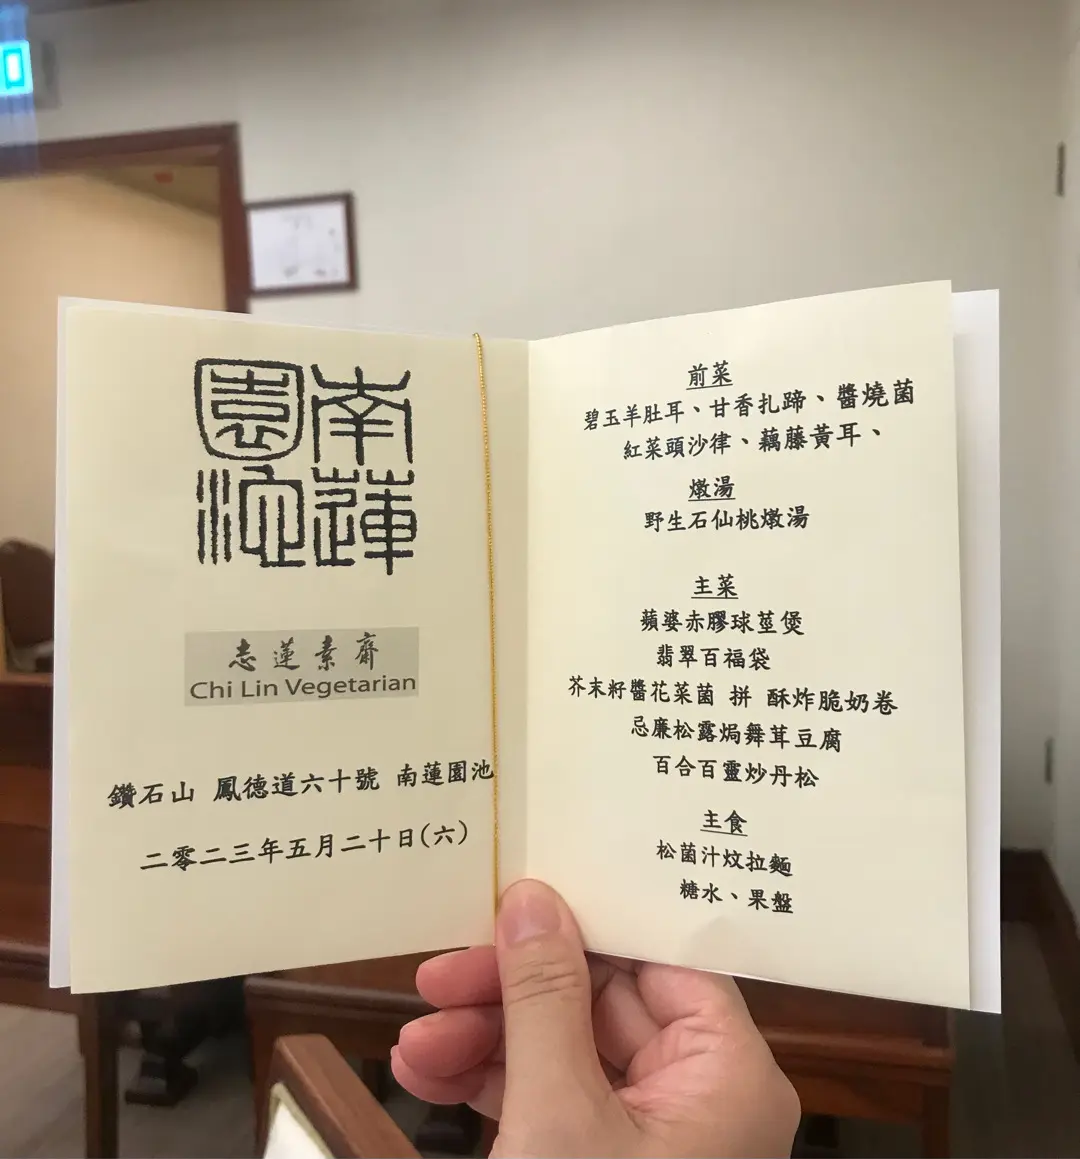 南蓮園池
志蓮素齋
Chi Lin Vegetarian
鑽石山 鳳德道六十號 南蓮園池
二零二三年五月二十日(六)
前菜
碧玉羊肚耳、甘香扎蹄、醬燒菌
紅菜頭沙律、藕藤黃耳、
燉湯
野生石仙桃燉湯
主菜
蘋婆赤膠球莖煲
翡翠百福袋
芥末籽醬花菜菌 拼 酥炸脆奶卷
忌廉松露焗舞茸豆腐
百合百靈炒丹松
主食
松菌汁炆拉麵
糖水、果盤